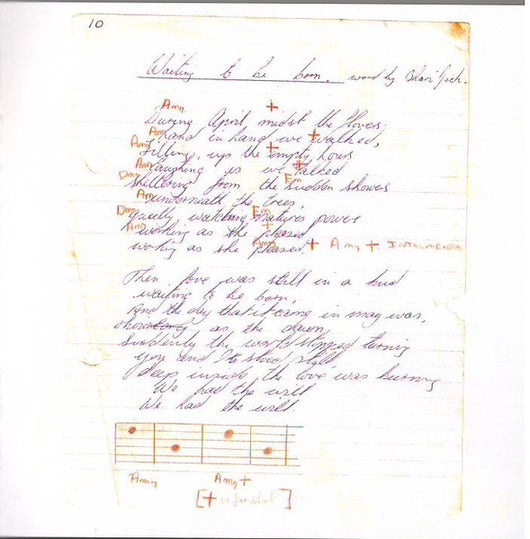 10
Waiting to be born. word by
Amn +
During April, midst the flovers,
Amn +
hand in hand we walked,
Amn +
Filling, up the empty hours
Amn +
Laughing as we talked
Dmn Emn
sheltering from the sudden showers
Amn
underneath the trees,
Dmn Emn
quietly watching natures power
Amn +
working as she pleased
Amn + Amn +
woking as she pleased.
Then love was still in a bud
waiting to be born,
And the day that it came in may was,
as the dawn
Suddenly the world stopped turning
you and I stood still
deep inside the love was burning
We had the will
We had the will.
Amn Amn +
[+ ]